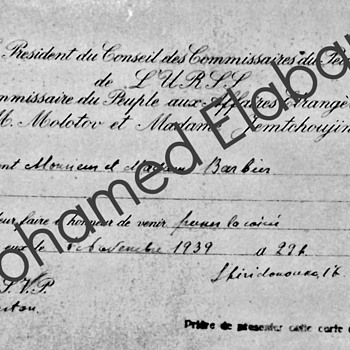 Président du Conseil des Commissaires du Pe
de L'U.R.S.S.
mmissaire du Peuple aux Affaires Etrangè
M. Molotov et Madame Jemtchoujin
ent Monsieur et Madame Barbier
leur faire l'honneur de venir passer la soirée
eux le Novembre 1939 à 22h.
Spiridonovka, 17
S.V.P.
Prière de presenter cette carte
Mohamed Elaba